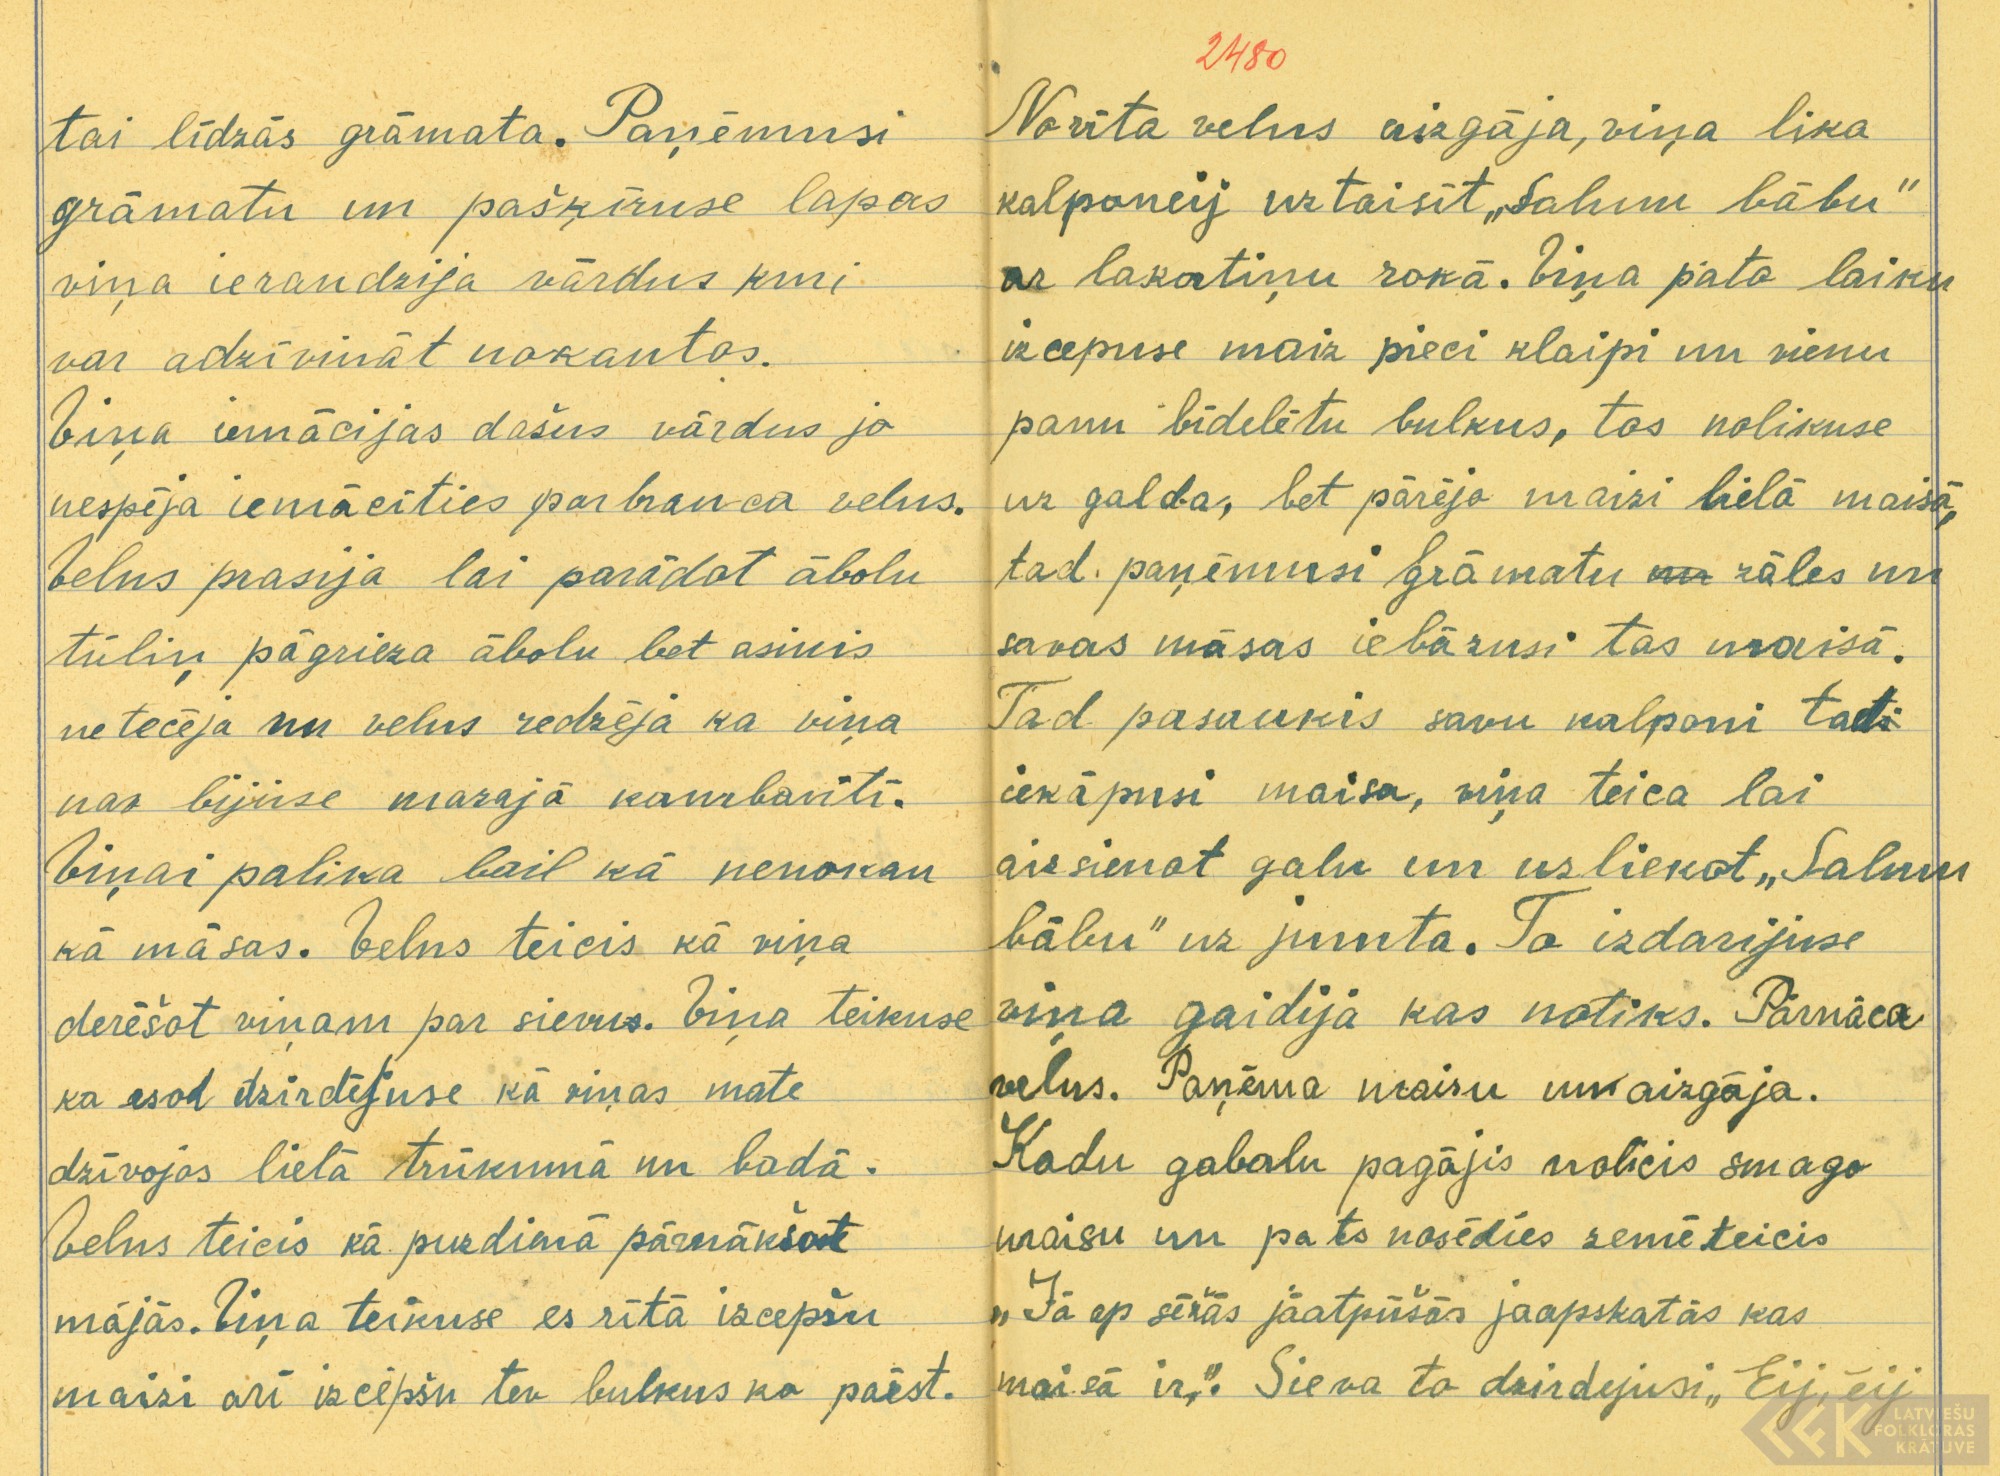 tai līdzās grāmata. Paņēmusi
grāmatu un pašķīruse lapas
viņa ieraudzija vārdus kuri
var adzīvināt nokautos.
Viņa iemācijas dašus vārdus jo
nespēja iemācīties parbrauca velns.
Velns prasija lai parādot ābolu
tūliņ pāgrieza ābolu bet asinis
netecēja un velns redzēja ka viņa
nav bijuse mazajā kambarītī.
Viņai palika bail kā nenokau
kā māsas. Velns teicis kā viņa
derēšot viņam par sievu. Viņa teikuse
ka esod dzirdējuse kā viņas mate
dzīvojos lielā trūkumā un badā.
Velns teicis kā puzdienā pārnākšot
mājās. Viņa teikuse es rītā izcepšu
maizi arī izcepšu tev bulkus ko paēst.
2480
No rīta velns aizgāja, viņa lika
kalponeij uztaisīt „Salmu bābu"
ar lakatiņu rokā. Viņa pato laiku
izcepuse maiz pieci klaipi un vienu
panu bīdelētu bulkus, tos nolikuse
uz galda, bet pārējo maizi lielā maisā,
tad paņēmusi grāmatu un zāles un
savas māsas iebāzusi tas maisā.
Tad pasaukis savu kalponi tad
iekāpusi maisa, viņa teica lai
aizsienot galu un uzliekot „Salmu
bābu" uz jumta. To izdarijuse
viņa gaidija kas notiks. Pārnāca
velns. Paņēma maisu un aizgāja.
Kadu gabalu pagājis nolicis smago
maisu un pats nosēdies zemē teicis
„Jā ap sēžās jāatpūšās jaapskatās kas
maisā ir,". Sieva to dzirdejusi „Eij, eij
LATVIEŠU
FOLKLORAS
KRĀTUVE